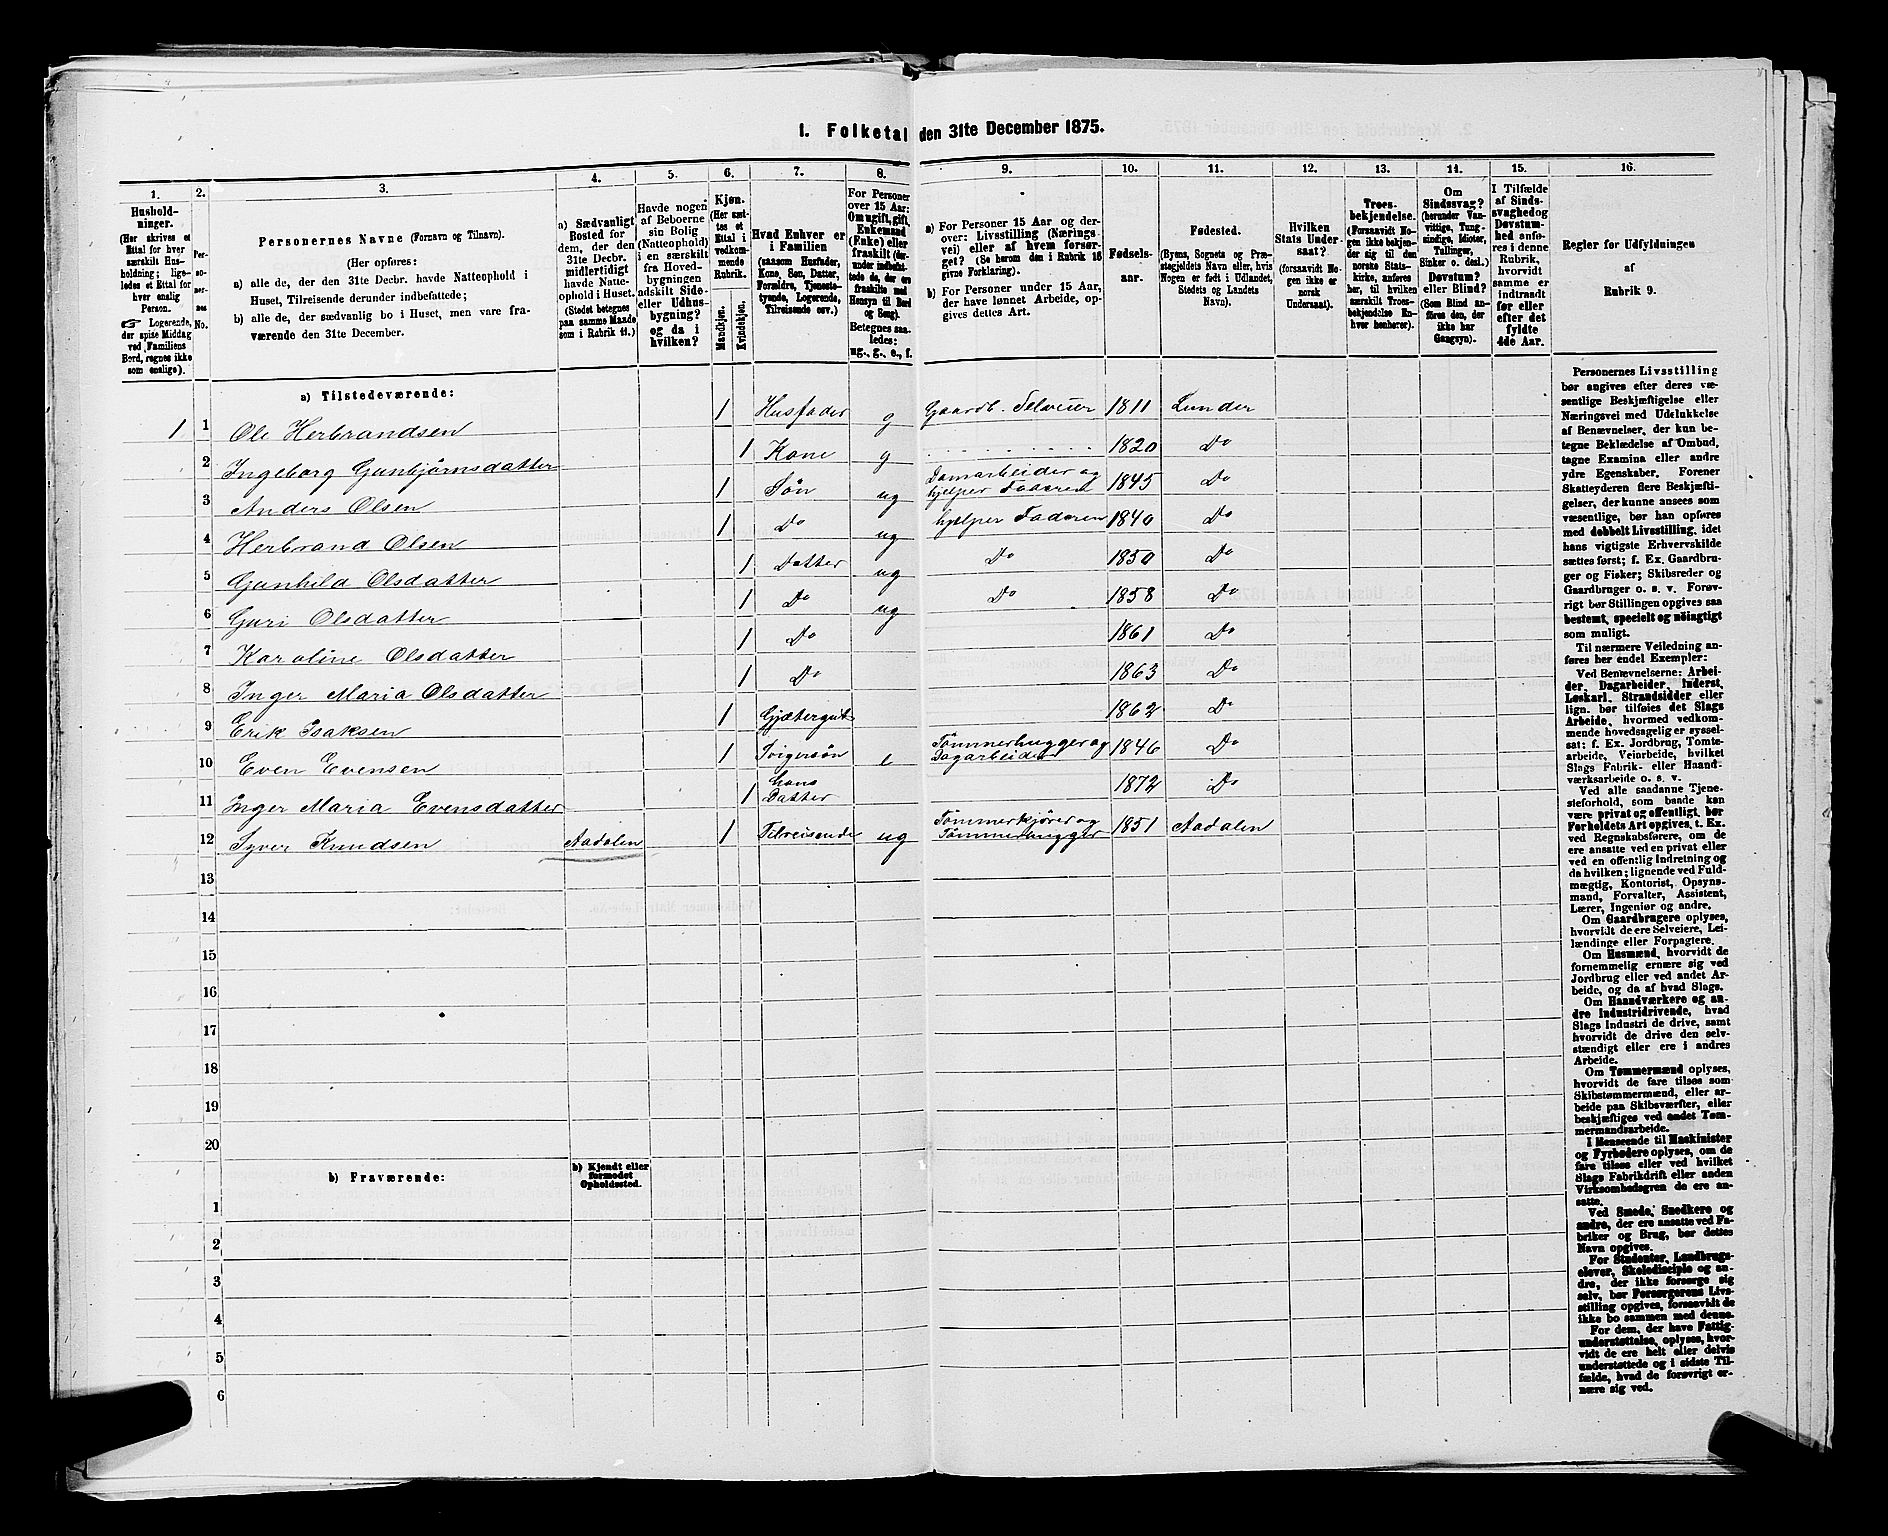 1. Folketal den 31te December 1875.
1.
2.
3.
4.
5.
6.
7.
8.
9.
10.
11.
12.
13.
14.
15.
16.
Hushold-
ninger.
(Her skrives et
Ettal for hver
særskilt Hus-
holdning; lige-
ledes et Ettal for
hver enslig
Person.
☞ Logerende,
der spise Middag
ved Familiens
Bord, regnes ikke
som enslige).
Per-
so-
ner-
nes
No.
Personernes Navne (Fornavn og Tilnavn).
(Her opføres:
a) alle de, der den 31te Decbr. havde Natteophold i
Huset, Tilreisende derunder indbefattede;
b) alle de, der sædvanlig bo i Huset, men vare fra-
værende den 31te December.
a) Sædvanligt
Bosted for
dem, der den
31te Decbr.
midlertidigt
havde Natte-
ophold i Huset.
(Stedet betegnes
paa samme Maade
som i Rubrik 11.)
Havde nogen
af Beboerne
sin Bolig
(Natteophold)
i en særskilt
fra Hoved-
bygningen
adskilt Side-
eller Udhus-
bygning?
og da i
hvilken?
Kjøn.
(Her sæt-
tes et
Ettal i
vedkom-
mende
Rubrik.
Mandkjøn.
Kvindekjøn.
Hvad Enhver er
i Familien
(saasom Husfader,
Kone, Søn, Datter,
Forældre, Tjeneste-
tyende, Logerende,
Tilreisende osv.)
For Personer
over 15 Aar:
Om ugift, gift,
Enkemand
(Enke) eller
fraskilt (der-
under indbefat-
tede de, der ere
fraskilte med
Hensyn til Bord
og Seng).
Betegnes saa-
ledes:
ug., g., e., f.
a) For Personer 15 Aar og der-
over: Livsstilling (Nærings-
vei) eller af hvem forsør-
get? (Se herom den i Rubrik 16
givne Forklaring).
b) For Personer under 15 Aar,
der have lønnet Arbeide, op-
gives dettes Art.
Fødsels-
aar.
Fødested.
(Byens, Sognets og Præ-
stegjeldets Navn eller, hvis
Nogen er født i Udlandet,
Stedets og Landets
Navn).
Hvilken
Stats Under-
saat?
(forsaavidt No-
gen ikke er
norsk
Undersaat).
Troes-
bekjendelse.
(Forsaavidt No-
gen ikke bekjen-
der sig til den
norske Stats-
kirke, anføres
her, til hvilken
særskilt Troes-
bekjendelse En-
hver henhører).
Om
Sindssvag?
(herunder Van-
vittige, Tung-
sindige, Idioter,
Tullinger,
Sinker o. desl.)
Døvstum?
eller Blind?
(Som Blind an-
føres den, der
ikke har
Gangsyn).
I Tilfælde
af Sinds-
svaghed og
Døvstum-
hed anfø-
res i denne
Rubrik,
hvorvidt
samme er
indtraadt
før eller
efter det
fyldte
4de Aar.
Regler for Udfyldningen
af
Rubrik 9.
a) Tilstedeværende:
1 1 Ole Herbrandsen 1 Husfader g Gaardb. Selveier 1811 Lunder
2 Ingeborg Gunbjørnsdatter 1 Kone g . . . . . . . . . . 1820 Do
3 Anders Olsen 1 Søn ug Damarbeider og
hjelper Faderen 1845 Do
4 Herbrand Olsen 1 Do ug hjelper Faderen 1840 Do
5 Gunhild Olsdatter 1 Datter ug Do 1850 Do
6 Guri Olsdatter 1 Do ug Do 1858 Do
7 Karoline Olsdatter 1 Do 1861 Do
8 Inger Maria Olsdatter 1 Do 1863 Do
9 Erik Isaksen 1 Gjætergut 1862 Do
10 Even Evensen 1 Svigersøn e Tømmerhugger og
Dagarbeider 1846 Do
11 Inger Maria Evensdatter 1 hans
Datter 1872 Do
12 Syver Knudsen Aadalen 1 Tilreisende ug Tømmerkjører og
Tømmerhugger 1851 Aadalen
13
14
15
16
17
18
19
20
b) Fraværende:
b) Kjendt eller
formodet
Opholdssted.
1
2
3
4
5
6
Personernes Livsstilling
bør angives efter deres væ-
sentlige Beskjæftigelse eller
Næringsvei med Udelukkelse
af Benævnelser, der kun be-
tegne Beklædelse af Ombud,
tagne Examina eller andre
ydre Egenskaber. Forener
Skatteyderen flere Beskjæfti-
gelser, der kunne ansees som
væsentlige, bør han opføres
med dobbelt Livsstilling, idet
hans vigtigste Erhvervskilde
sættes først; f. Ex. Gaardbru-
ger og Fisker; Skibsreder og
Gaardbruger o. s. v. Forøv-
rigt bør Stillingen opgives saa
bestemt, specielt og nøiagtigt
som muligt.
Til nærmere Veiledning an-
føres her endel Exempler:
Ved Benævnelserne: Arbei-
der, Dagarbeider, Inderst,
Løskarl, Strandsidder eller
lign. bør tilføies det Slags
Arbeide, hvormed vedkom-
mende hovedsagelig er syssel-
sat: f. Ex. Jordbrug, Tomte-
arbeide, Veiarbeide, hvilket
Slags Fabrik- eller Haand-
værksarbeide o. s. v.
Ved alle saadanne Tjene-
steforhold, som baade kan
være privat og offentligt, bør
Forholdets Art opgives, t. Ex.
ved Regnskabsførere, om de
ere ansatte ved en privat eller
ved en offentlig Indretning og
da hvilken; lignende ved Fuld-
mægtig, Kontorist, Opsyns-
mand, Forvalter, Assistent,
Lærer, Ingeniør og andre.
Om Gaardbrugere oplyses,
hvorvidt de ere Selveiere, Lei-
lændinge eller Forpagtere.
Om Husmænd, hvorvidt de
fornemmelig ernære sig ved
Jordbrug eller ved andet Ar-
beide, og da af hvad Slags.
Om Haandværkere og an-
dre Industridrivende, hvad
Slags Industri de drive, samt
hvorvidt de drive den selv-
stændigt eller ere i andres
Arbeide.
Om Tømmermænd oplyses,
hvorvidt de fare tilsøs som
Skibstømmermænd, eller ar-
beide paa Skibsværfter, eller
beskjæftiges ved andet Tøm-
mermandsarbeide.
I Henseende til Maskinister
og Fyrbødere oplyses, om de
fare tilsøs eller ved hvilket
Slags Fabrikdrift eller anden
Virksomhedsgren de ere an-
satte.
Ved Smede, Snedkere og
andre, der ere ansatte ved Fa-
briker og Brug, bør dettes
Navn opgives.
For Studenter, Landbrugs-
elever, Skoledisciple og an-
dre, der ikke forsørge sig
selv, bør Forsørgerens Livs-
stilling opgives, forsaavidt de
ikke bo sammen med denne.
For dem, der have Fattig-
understøttelse, oplyses, hvor-
vidt de ere helt eller delvis
understøttede og i sidste Til-
fælde, hvad de forøvrigt er-
nære sig ved.